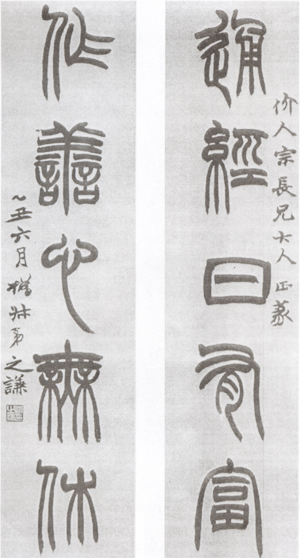 价人宗長兄大人正篆
通經日有富
作善心無休
乙丑六月撝叔弟之謙